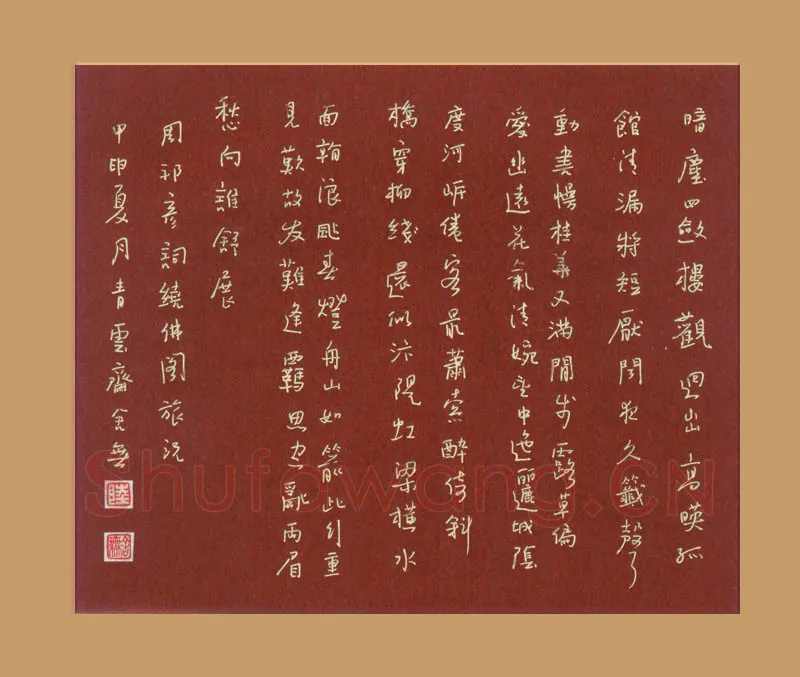 暗塵四斂樓觀迥出高暎孤
館清漏将短厭聞夜久籤聲
動書幔桂華又滿閒步露草偏
愛幽遠花氣清婉望中迤邐城陰
度河岸倦客最蕭索醉倚斜
橋穿柳綫還似汴隄虹梁橫水
面看浪颭春燈舟下如箭此行重
見歎故友難逢羈思空亂兩眉
愁向誰舒展
周邦彦詞繞佛閣旅況
甲申夏月青雲齋
Shufawang.CN